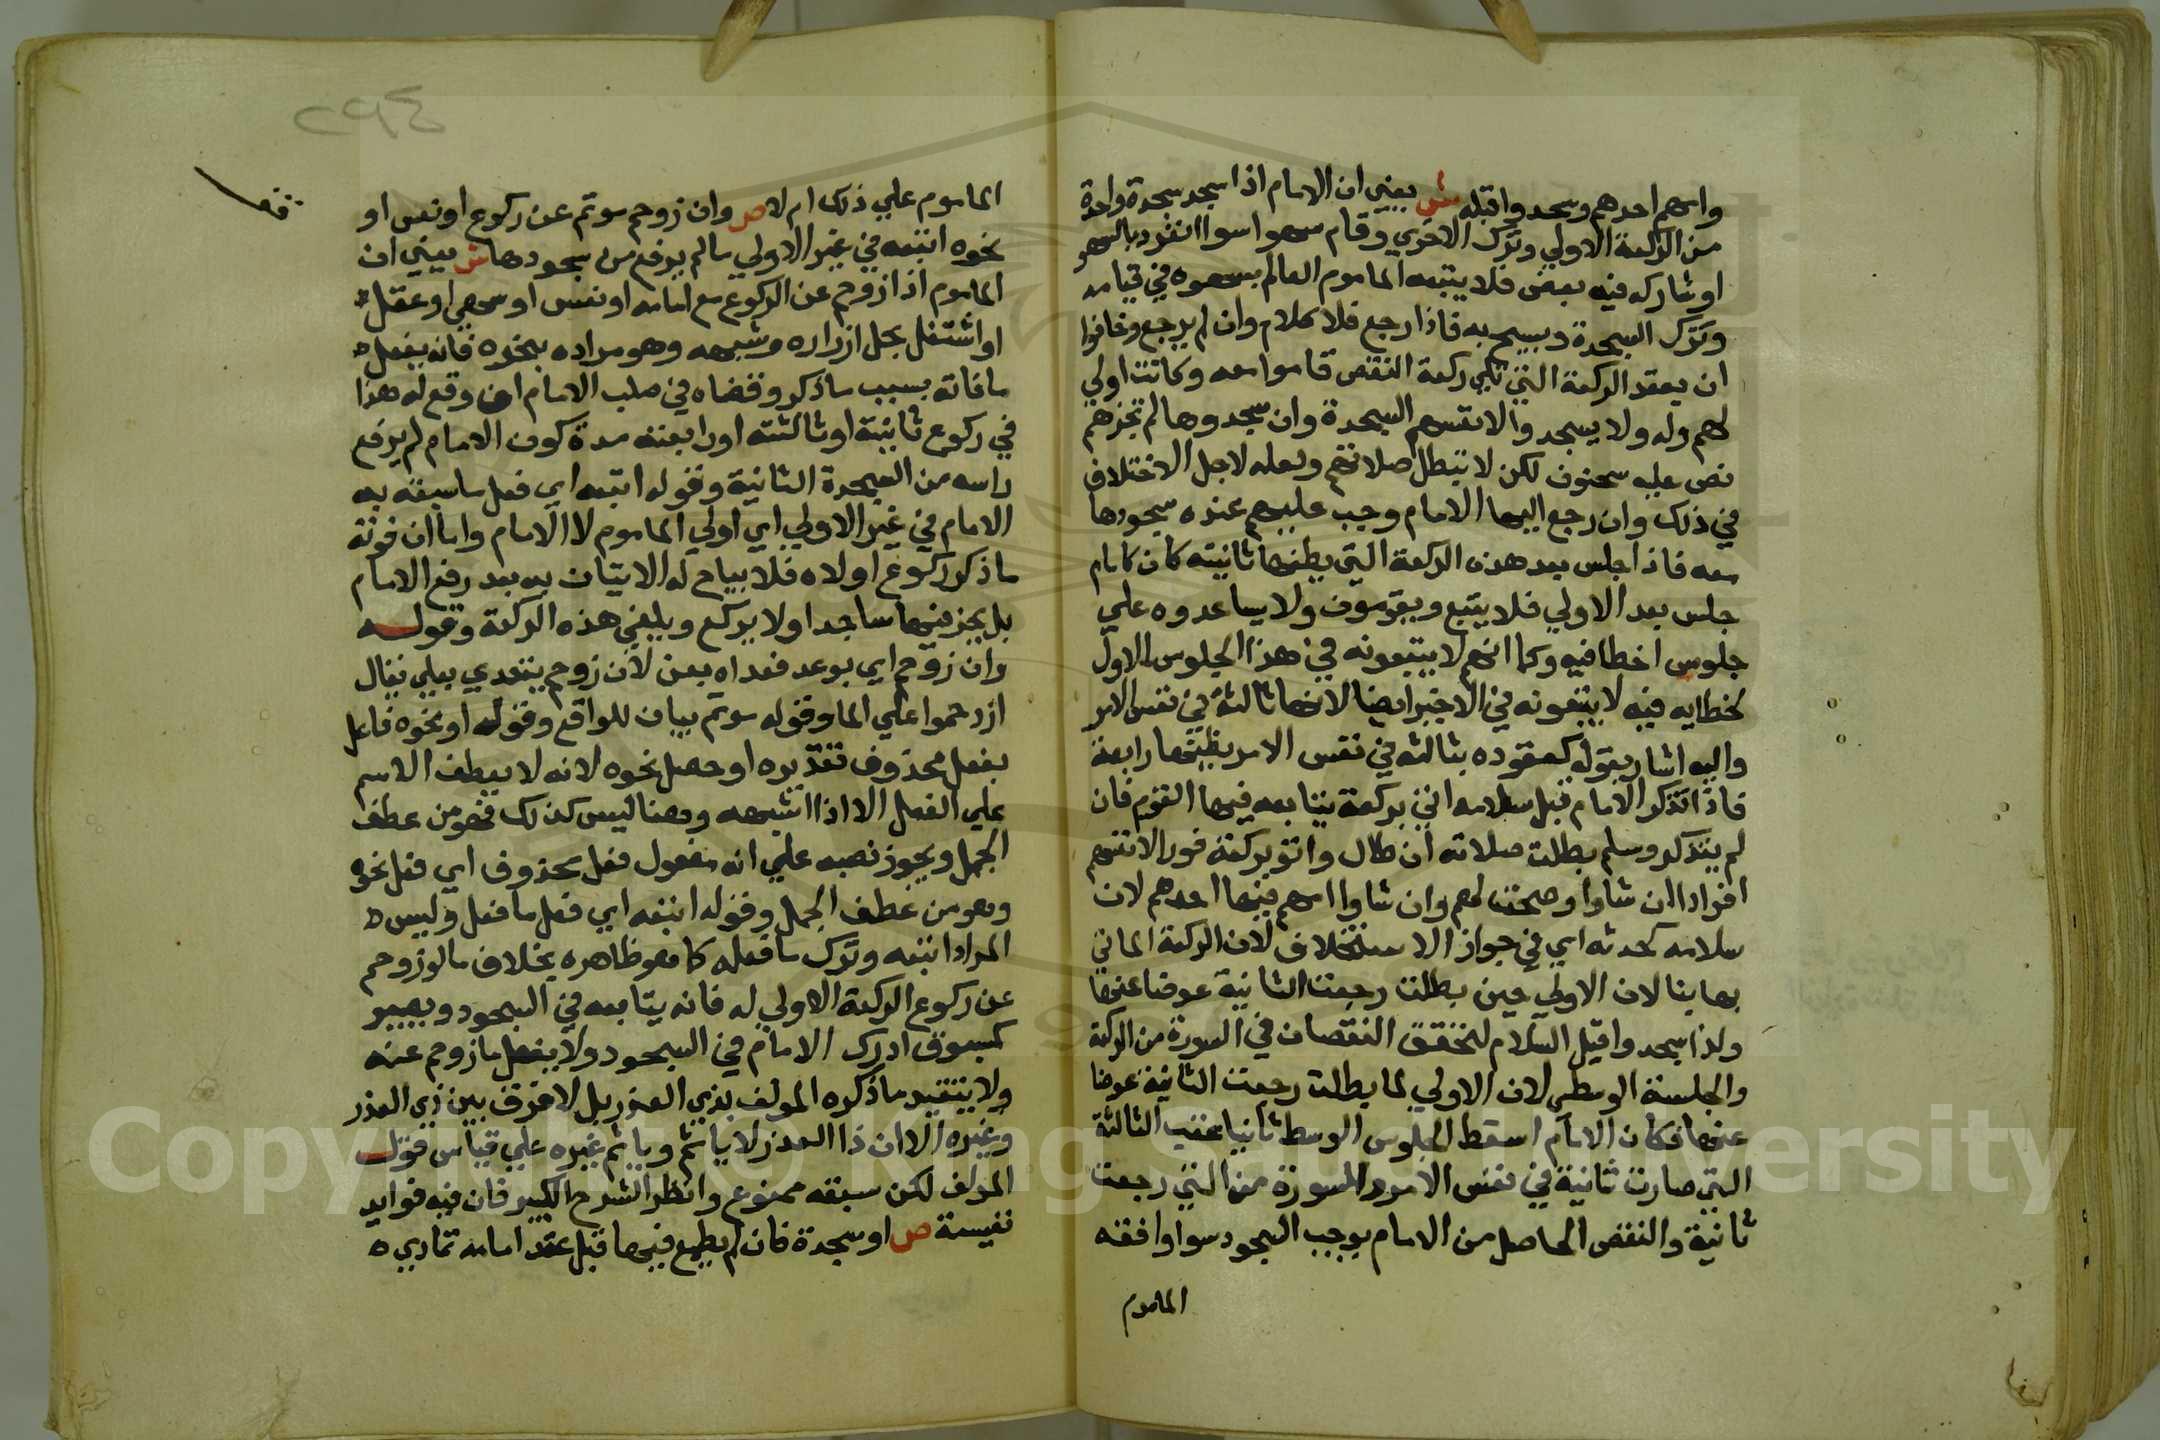 وامهم احدهم وسجد واقبله ش يعني ان الامام اذا سجد سجدة واحدة
من الركعة الاولي وترك الاخري وقام سهوا سوا انفرد بالسهو
او شاركه فيه بعض فلا يتبعه الماموم العالم بسهوه في قيامه
وترك السجدة ويسبح به فاذا رجع فلا كلام وان لم يرجع وخافوا
ان يعقد الركعة التي تلي ركعة النقص قاموا معه وكانت اولي
لهم وله ولا يسجد والانفسهم السجدة وان سجدوها لم تجزهم
نص عليه سحنون لكن لا تبطل صلاتهم ولعله لاجل الاختلاف
في ذلك وان رجع اليها الامام وجب عليهم عنده سجودها
معه فاذا جلس بعد هذه الركعة التي يظنها ثانيته كان كامام
جلس بعد الاولي فلا يتبع ويقومون ولا يساعدوه علي
جلوس اخطا فيه وكما انهم لا يتبعونه في هذا الجلوس الاول
لخطايه فيه لا يتبعونه في الاخير ايضا لانها ثالثة في نفس الامر
واليه اشار بقوله كعقوده بثالثه في نفس الامر يظنها رابعة
فاذا تذكر الامام قبل سلامه اتي بركعة يتابعه فيها القوم فان
لم يتذكر وسلم بطلت صلاته ان طال واتو بركعة فور الانفسهم
افرادا ان شاوا وصحت لهم وان شاوا امهم فيها احدهم لان
سلامه كحدثه اي في جواز الاستخلاف لان الركعة الماتي
بها بنا لان الاولي حين بطلت رجعت الثانية عوضا عنها
ولذا سجد واقبل السلام لتحقق النقصان في السورة من الركعة
والجلسة الوسطي لان الاولي لما بطلت رجعت الثانية عوضا
عنها فكان الامام اسقط الجلوس الوسط ثانيا عقب الثالثة
التي صارت ثانية في نفس الامر والسورة من التي رجعت
ثانية والنقص الحاصل من الامام يوجب السجود سوا وافقه
الماموم
الماموم علي ذلك ام لا ص وان زوحم موتم عن ركوع او نعس او
نحوه اتبعه في غير الاولي ما لم يرفع من سجودها ش يعني ان
الماموم اذا زوحم عن الركوع مع امامه او نعس او سهي او غفل
او اشتغل بحل ازراره وشبهه وهو مراده بنحوه فانه يفعل
ما فاته بسبب ما ذكر وقضاه في صلب الامام ان وقع له هذا
في ركوع ثانيته او ثالثته او رابعته مدة كون الامام لم يرفع
راسه من السجدة الثانية وقوله اتبعه اي فعل ما سبقه به
الامام في غير الاولي اي اولي الماموم لا الامام واما ان فوته
ما ذكر ركوع اولاه فلا يباح له الاتيان به بعد رفع الامام
بل يخر فيها ساجدا ولا يركع ويلغي هذه الركعة وقوله
وان زوحم اي بوعد فعداه بعن لان زوحم يتعدي بعلي يقال
ازدحموا علي الما وقوله موتم بيان للواقع وقوله او نحوه فاعل
بفعل محذوف تقديره او حصل نحوه لانه لا يعطف الاسم
علي الفعل الا اذا اشبهه وهنا ليس كذلك فهو من عطف
الجمل ويجوز نصبه علي انه مفعول فعل محذوف اي فعل نحوه
وهو من عطف الجمل وقوله اتبعه اي فعل ما فعل وليس
المراد اتبعه وترك ما فعله كما هو ظاهره بخلاف ما لو زوحم
عن ركوع الركعة الاولي له فانه يتابعه في السجود ويصير
كمسبوق ادرك الامام في السجود ولا يفعل ما زوحم عنه
ولا يتقيد ما ذكره المولف بذي العذر بل لا فرق بين ذي العذر
وغيره الا ان ذا العذر لا ياثم وياثم غيره علي قياس قول
المولف لكن سبقه ممنوع وانظر الشرح الكبير فان فيه فوايد
نفيسة ص او سجدة فان لم يطمع فيها قبل عقد امامه تمادي